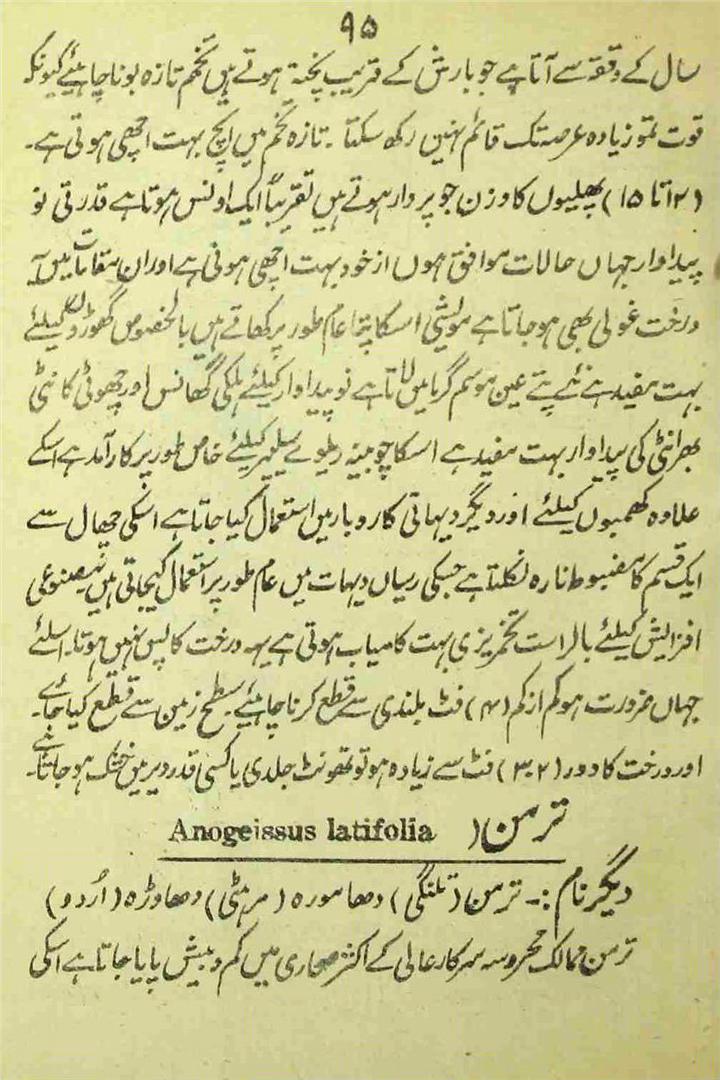 ۹۵
سال کے وقفہ سے آتا ہے جو بارش کے قریب پختہ ہوتے ہیں تخم تازہ بونا چاہیئے کیونکہ
قوت نمو زیادہ عرصہ تک قائم نہیں رکھ سکتا ۔ تازہ تخم میں اپچ بہت اچھی ہوتی ہے ۔
(۱۲ تا ۱۵) پھلیوں کا وزن جو پردار ہوتے ہیں تقریباً ایک اونس ہوتا ہے قدرتی نو
پیداوار جہاں حالات موافق ہوں از خود بہت اچھی ہوتی ہے اور ان مقامات میں یہ
درخت غولی بھی ہو جاتا ہے مویشی اسکا پتا عام طور پر کھاتے ہیں بالخصوص گھوڑوں کیلئے
بہت مفید ہے نئے پتے عین موسم گرما میں لاتا ہے نو پیداوار کیلئے ہلکی گھانس اور چھوٹی کانٹی
بھرانٹی کی پیداوار بہت مفید ہے اسکا چوبینہ ریلوے سلیپر کیلئے خاص طور پر کارآمد ہے اسکے
علاوہ کھمبوں کیلئے اور دیگر دیہاتی کاروبار میں استعمال کیا جاتا ہے اسکی چھال سے
ایک قسم کا مضبوط نارہ نکلتا ہے جسکی رسیاں دیہات میں عام طور پر استعمال کیجاتی ہیں مصنوعی
افزایش کیلئے بالراست تخمریزی بہت کامیاب ہوتی ہے یہہ درخت کاپس نہیں ہوتا۔ اسلئے
جہاں ضرورت ہو کم از کم (۴) فٹ بلندی سے قطع کرنا چاہیئے سطح زمین سے قطع کیا جائے ۔
اور درخت کا دور (۲۔۳) فٹ سے زیادہ ہو تو تھونٹ جلدی یا کسی قدر دیر میں خشک ہو جاتا ہے ۔
ترمن ( Anogeissus latifolia
دیگر نام :۔ ترمن (تلنگی) دھامورہ (مرہٹی) دھاوڑہ (اُردو)
ترمن ممالک محروسہ سرکار عالی کے اکثر صحاری میں کم و بیش پایا جاتا ہے اسکی